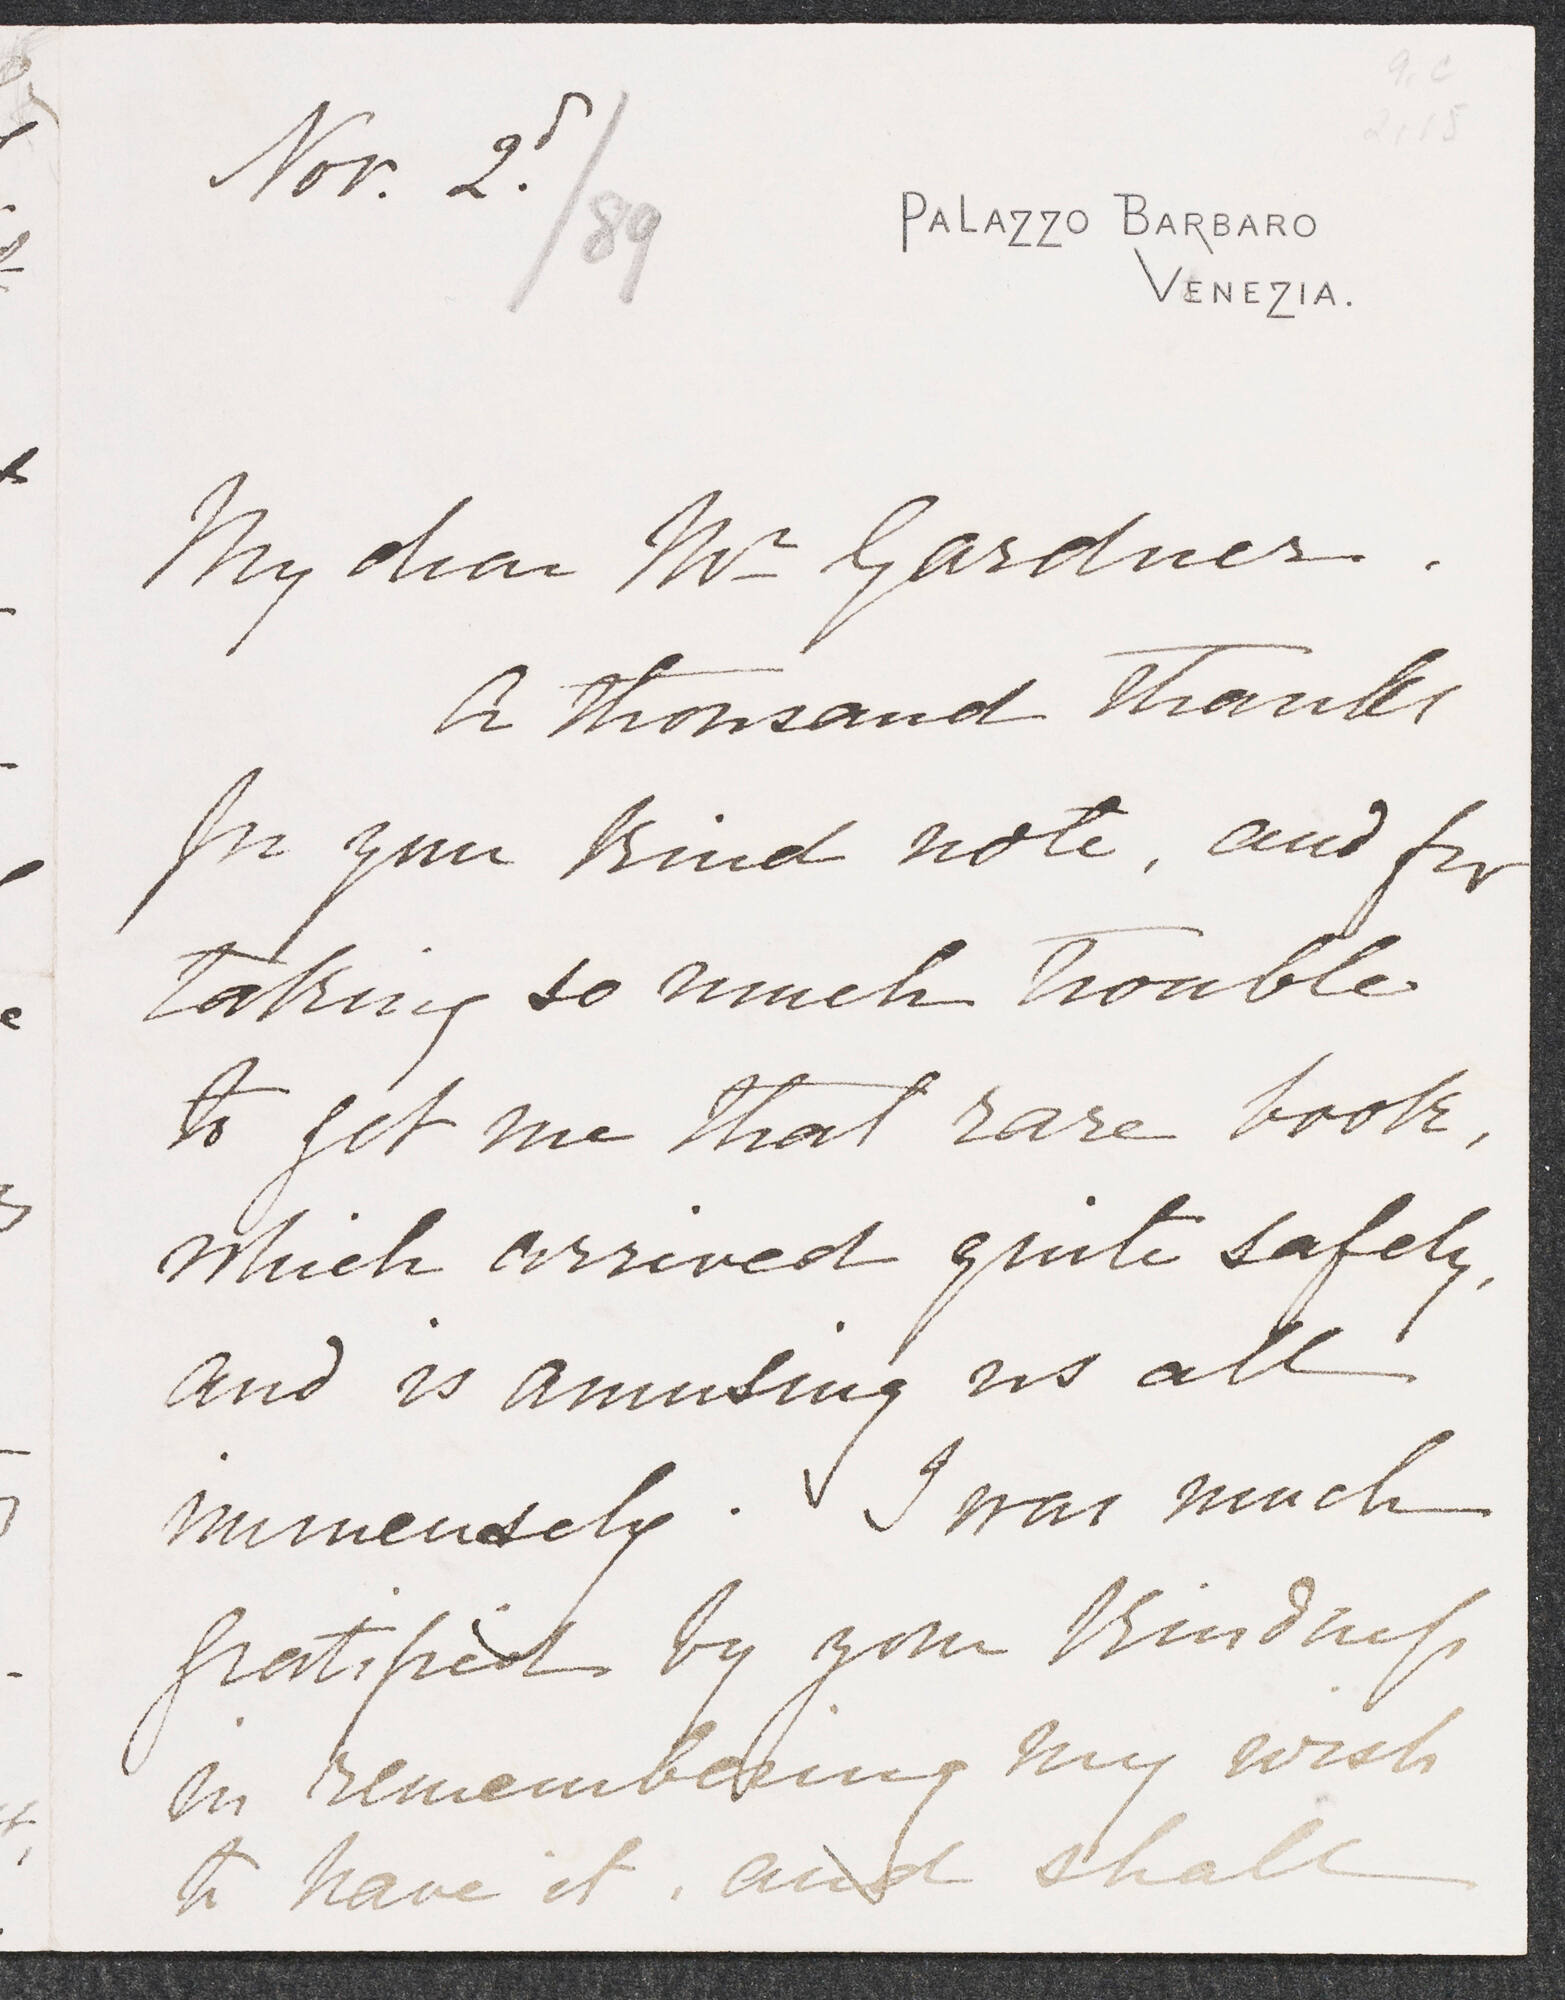 9. C
2.15
Nov. 2.d /89
PALAZZO BARBARO
VENEZIA.
My dear Mr Gardner.
A thousand thanks
for your kind note, and for
taking so much trouble
to get me that rare book,
which arrived quite safely,
and is amusing us all
immensely. I was much
gratified by your kindness
in remembering my wish
to have it, and shall